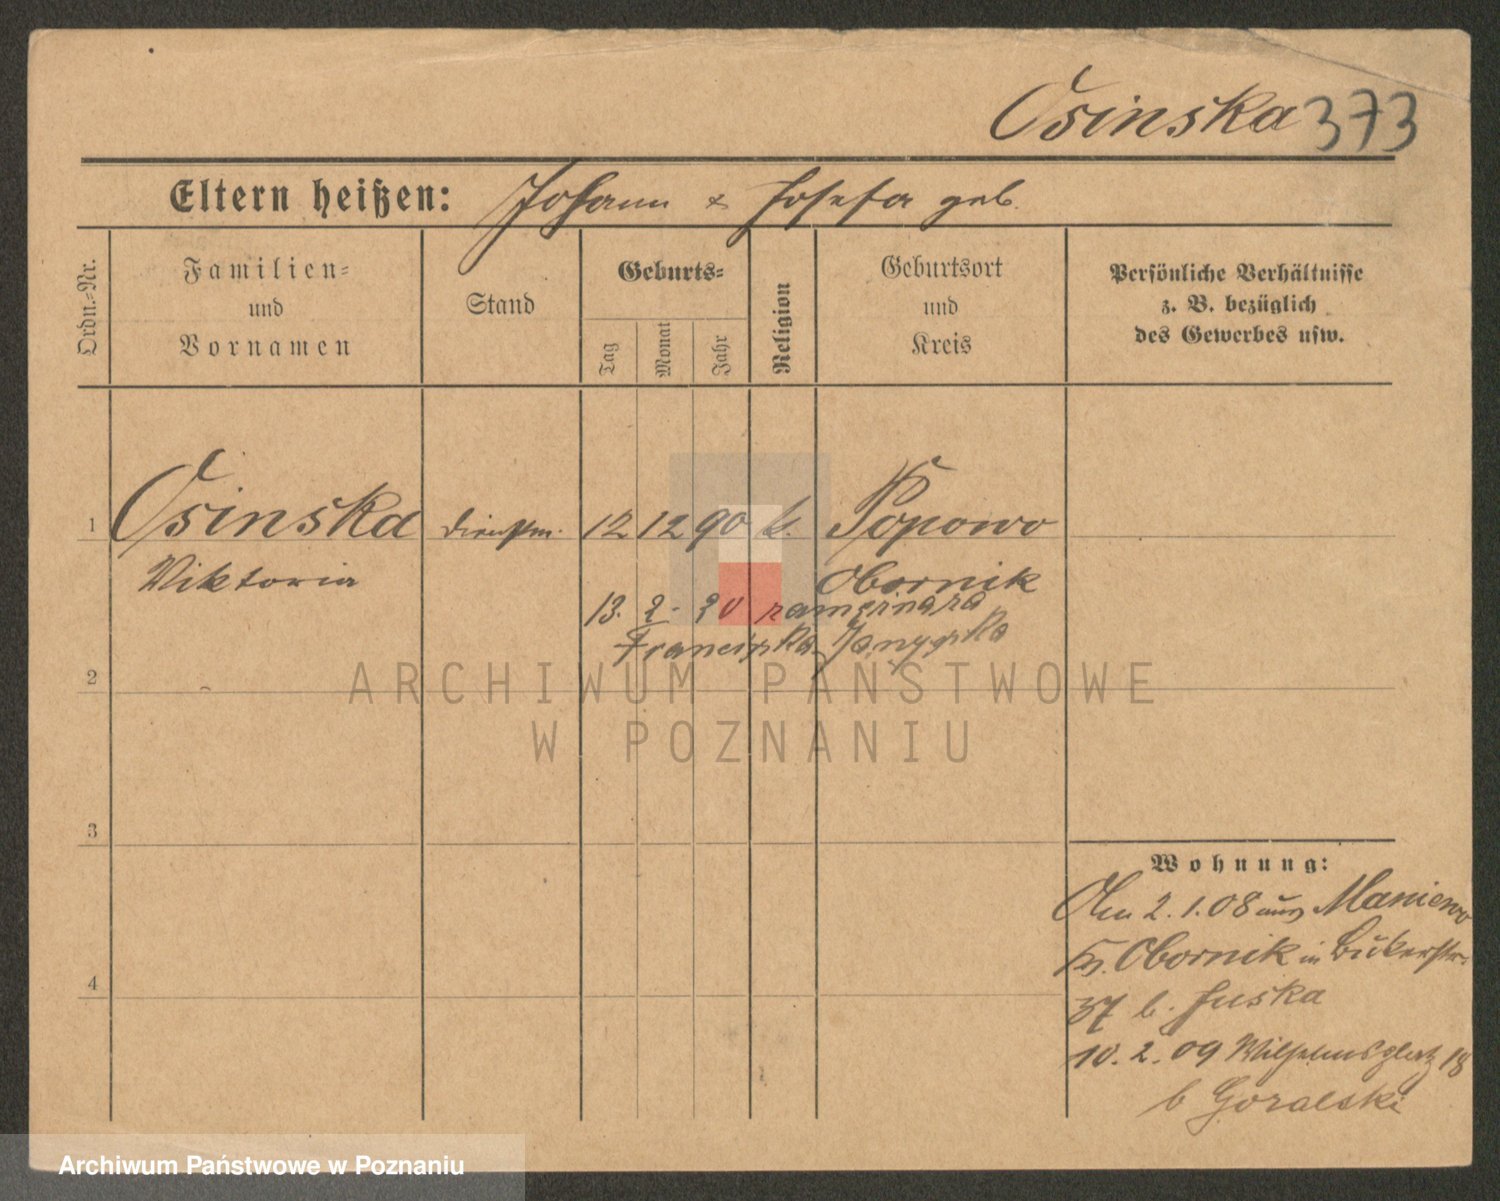 Osinska 373
Eltern heißen: Johann & Josefa geb.
Ordn.-Nr.
Familien-
und
Vornamen
Stand
Geburts-
Tag
Monat
Jahr
Religion
Geburtsort
und
Kreis
Persönliche Verhältnisse
z. B. bezüglich
des Gewerbes usw.
1 Osinska Dienstm. 12 12 90 k. Popowo
Viktoria Obornik
13. 2. 20 zamężna za
Franciszka
2
3
4
Wohnung:
Am 2.1.08 aus Maniewo
Kr. Obornik in Bukerstr.
37 b. Juska
10.2.09 Wilhelmsplatz 18
b Goralski
ARCHIWUM PAŃSTWOWE
W POZNANIU
Archiwum Państwowe w Poznaniu